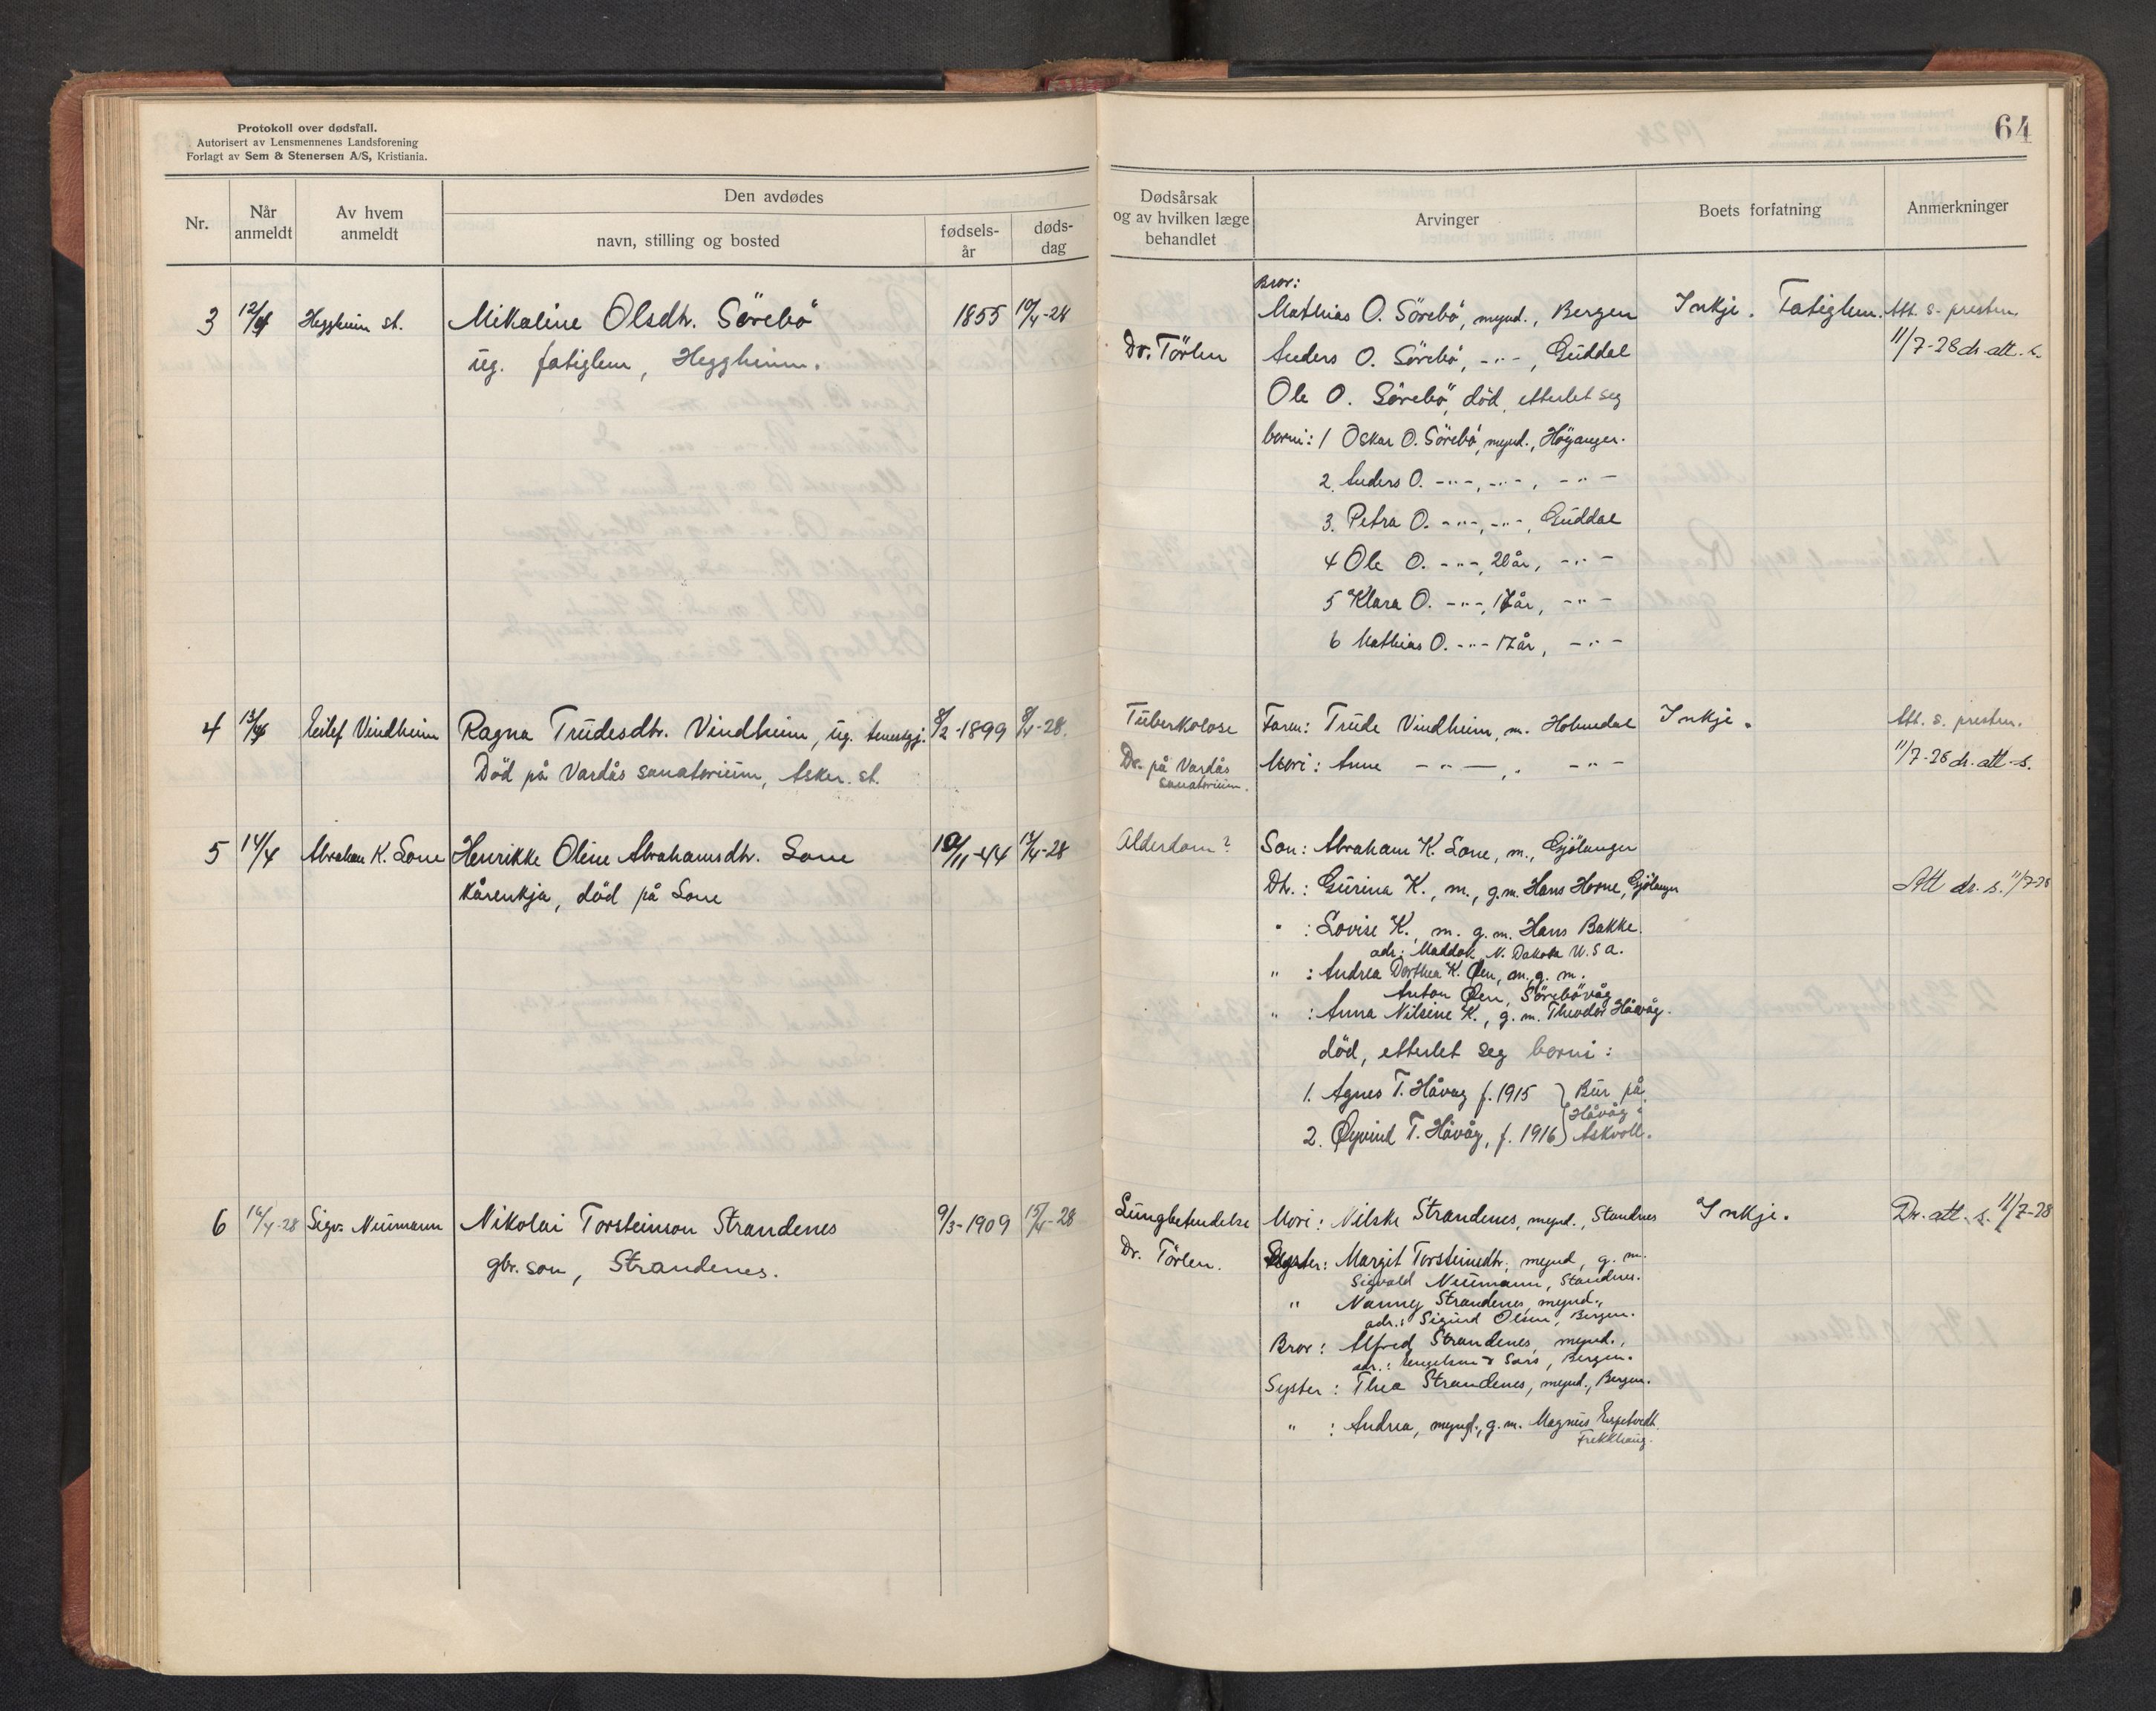 Protokoll over dødsfall.
Autorisert av Lensmennenes Landsforening
Forlagt av Sem & Stenersen A/S, Kristiania.
64
Nr.
Når anmeldt
Av hvem anmeldt
Den avdødes
navn, stilling og bosted
fødsels-år
døds-dag
Dødsårsak og av hvilken læge behandlet
Arvinger
Boets forfatning
Anmerkninger
3 12/4 Heggheim st. Mikaline Olsdtr. Sörebö 1855 10/4-28
ug. fatiglem, Heggheim.
Dr. Törlen
Bror:
Mathias O. Sörebö, mynd., Bergen
Anders O. Sörebö, -"-, Guddal
Ole O. Sörebö, död, etterlet seg
borni: 1 Oskar O. Sörebö, mynd., Höyanger.
2. Anders O. -"-, -"-, -"-
3. Petra O. -"-, -"-, Guddal
4 Ole O. -"-, 20 år, -"-
5 Klara O. -"-, 17 år, -"-
6 Mathias O. -"- 17 år, -"-
Inkje. Fatiglem.
Att. s. presten.
11/7-28 dr. att. s.
4 13/4 Eilef Vindheim Ragna Trudesdtr. Vindheim, ug. tenestgj. 8/2-1899 8/4-28.
Död på Vardås sanatorium, Asker st.
Tuberkolose
Dr. på Vardås
sanatorium.
Faren: Trude Vindheim, m. Holmedal
Mori: Anne -"-, -"-
Inkje.
Att. s. presten.
11/7-28 dr. att. s.
5 14/4 Abraham K. Lone Henrikke Oline Abrahamsdtr. Lone 10/11-44 14/4-28
kårenkja, död på Lone
Alderdom?
Son: Abraham K. Lone, m., Gjölanger
Dtr.: Gurina K., m., g.m. Hans Horne, Gjölanger
" : Lovise K., m. g.m. Hans Bakke.
adr.: Maddok, N. Dakota U.S.A.
" : Andrea Dorthea K. Øen, m. g. m.
Anton Øen, Sörebövåg
" : Anna Nilsine K., g. m. Theodor Håvåg.
död, etterlet seg borni:
1. Agnes T. Håvåg f. 1915 } Bur på
Håvåg
2. Øyvind T. Håvåg, f. 1916 } Askvoll.
Att dr. s. 11/7-28
6 16/4-28 Sigv. Neumann Nikolai Torsteinson Strandenes 9/3-1909 15/4-28
gbr. son, Strandenes.
Lungbetendelse
Dr. Törlen.
Mori: Nilske Strandenes, mynd., Standnes
Syster: Margit Torsteinsdtr., mynd, g. m.
Sigvald Neumann, Standnes.
" Nanny Strandenes, mynd.,
adr.: Sigurd Olsen, Bergen.
Bror: Alfred Strandenes, mynd.,
adr.: Bergen.
Syster: Thea Strandenes, mynd., Bergen.
" : Andrea, mynd., g.m. Magnus
Frekkhaug.
Inkje.
Dr. att. s. 11/7-28